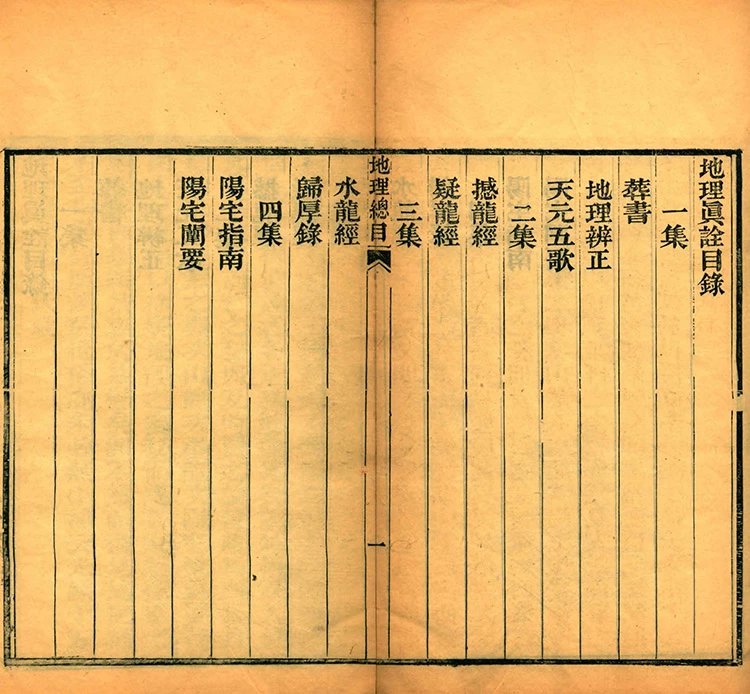 地理眞詮目錄
一集
葬書
地理辨正
天元五歌
二集
撼龍經
疑龍經
三集
地理總目
一
水龍經
歸厚錄
四集
陽宅指南
陽宅闡要